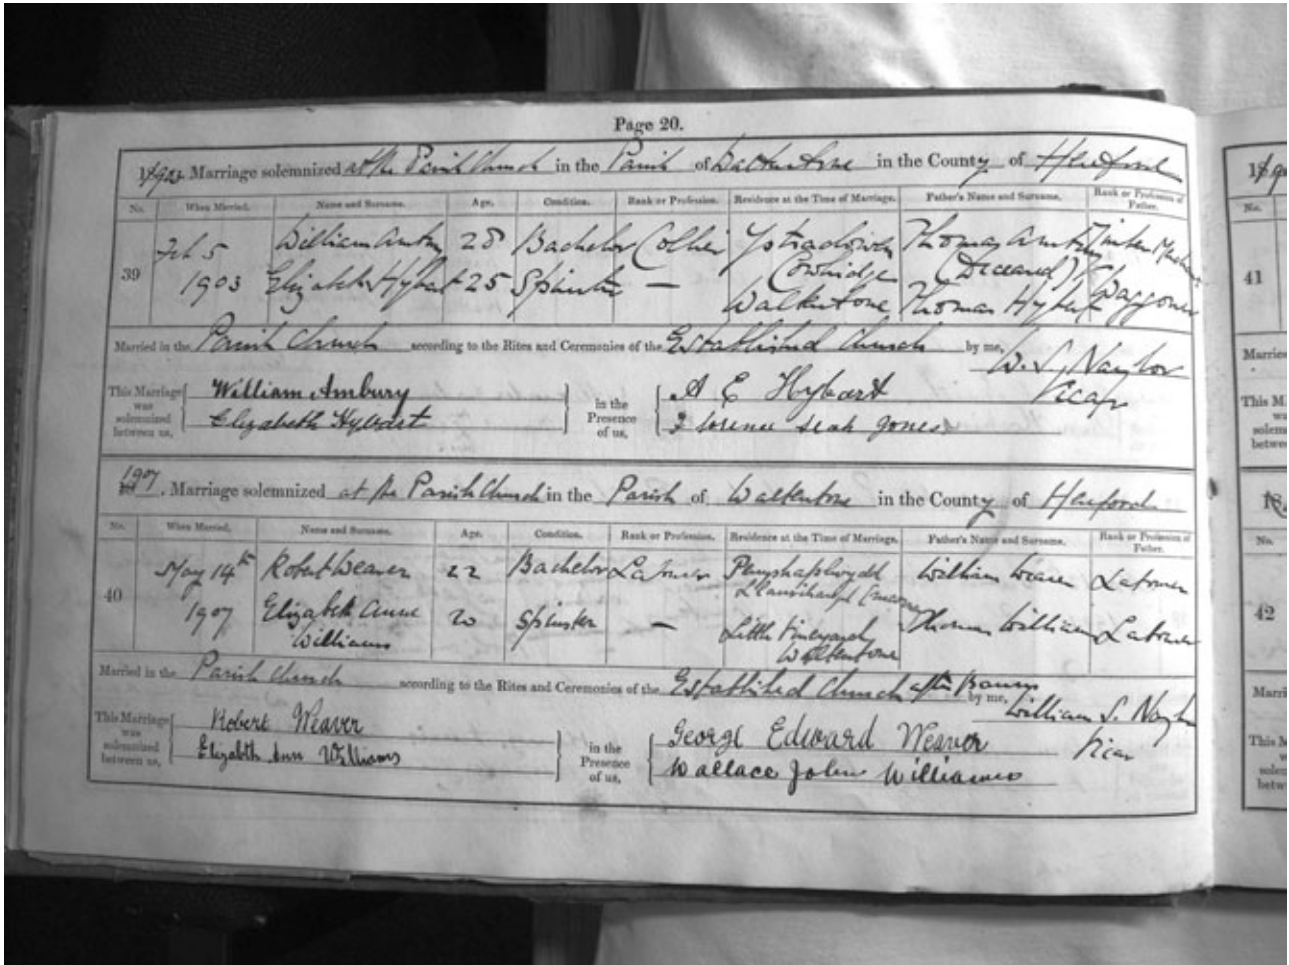 Page 20.
1903 Marriage solemnized at the Parish Church in the Parish of Walterstone in the County of Hereford
No. When Married. Name and Surname. Age. Condition. Rank or Profession. Residence at the Time of Marriage. Father's Name and Surname. Rank or Profession of Father.
39
Feb 5 William Ambury 28 Bachelor Collier Ystradowen Cowbridge Thomas Ambury (Deceased) Timber
1903 Elizabeth Hybart 25 Spinster — Walterstone Thomas Hybart Waggoner
Married in the Parish Church according to the Rites and Ceremonies of the Established Church by me, W. S. Naylor
Vicar
This Marriage was solemnized between us, William Ambury
Elizabeth Hybart
in the Presence of us, A E Hybart
Florence Leah Jones
1907. Marriage solemnized at the Parish Church in the Parish of Walterstone in the County of Hereford
No. When Married. Name and Surname. Age. Condition. Rank or Profession. Residence at the Time of Marriage. Father's Name and Surname. Rank or Profession of Father.
40
May 14th Robert Weaver 22 Bachelor Labourer William Weaver Labourer
1907 Elizabeth Anne Williams 20 Spinster — Little Vineyard Walterstone Thomas Williams Labourer
Married in the Parish Church according to the Rites and Ceremonies of the Established Church after Banns by me, William S. Naylor
Vicar
This Marriage was solemnized between us, Robert Weaver
Elizabeth Ann Williams
in the Presence of us, George Edward Weaver
Wallace John Williams
No.
41
No.
42